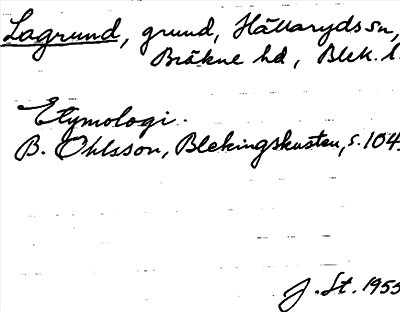 Lagrund, grund, Hällaryds sn,
Bräkne hd, Blek. l.
Etymologi.
B. Ohlsson, Blekingskusten, s. 104.
J. St. 1955